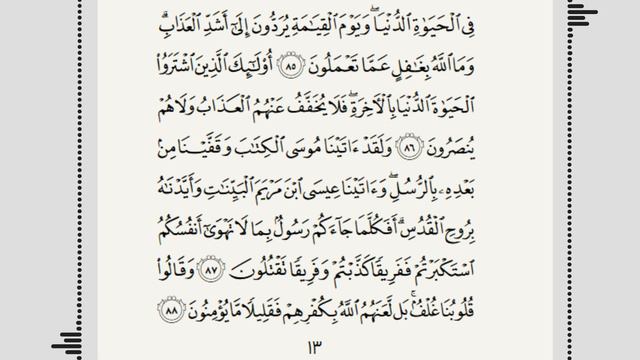 فِي ٱلْحَيَوٰةِ ٱلدُّنْيَاۖ وَيَوْمَ ٱلْقِيَـٰمَةِ يُرَدُّونَ إِلَىٰٓ أَشَدِّ ٱلْعَذَابِۗ
وَمَا ٱللَّهُ بِغَـٰفِلٍ عَمَّا تَعْمَلُونَ ٨٥ أُو۟لَـٰٓئِكَ ٱلَّذِينَ ٱشْتَرَوُا۟
ٱلْحَيَوٰةَ ٱلدُّنْيَا بِٱلْـَٔاخِرَةِۖ فَلَا يُخَفَّفُ عَنْهُمُ ٱلْعَذَابُ وَلَا هُمْ
يُنصَرُونَ ٨٦ وَلَقَدْ ءَاتَيْنَا مُوسَى ٱلْكِتَـٰبَ وَقَفَّيْنَا مِنۢ
بَعْدِهِۦ بِٱلرُّسُلِۖ وَءَاتَيْنَا عِيسَى ٱبْنَ مَرْيَمَ ٱلْبَيِّنَـٰتِ وَأَيَّدْنَـٰهُ
بِرُوحِ ٱلْقُدُسِۗ أَفَكُلَّمَا جَآءَكُمْ رَسُولٌۢ بِمَا لَا تَهْوَىٰٓ أَنفُسُكُمُ
ٱسْتَكْبَرْتُمْ فَفَرِيقًا كَذَّبْتُمْ وَفَرِيقًا تَقْتُلُونَ ٨٧ وَقَالُوا۟
قُلُوبُنَا غُلْفٌۢۚ بَل لَّعَنَهُمُ ٱللَّهُ بِكُفْرِهِمْ فَقَلِيلًا مَّا يُؤْمِنُونَ ٨٨
١٣